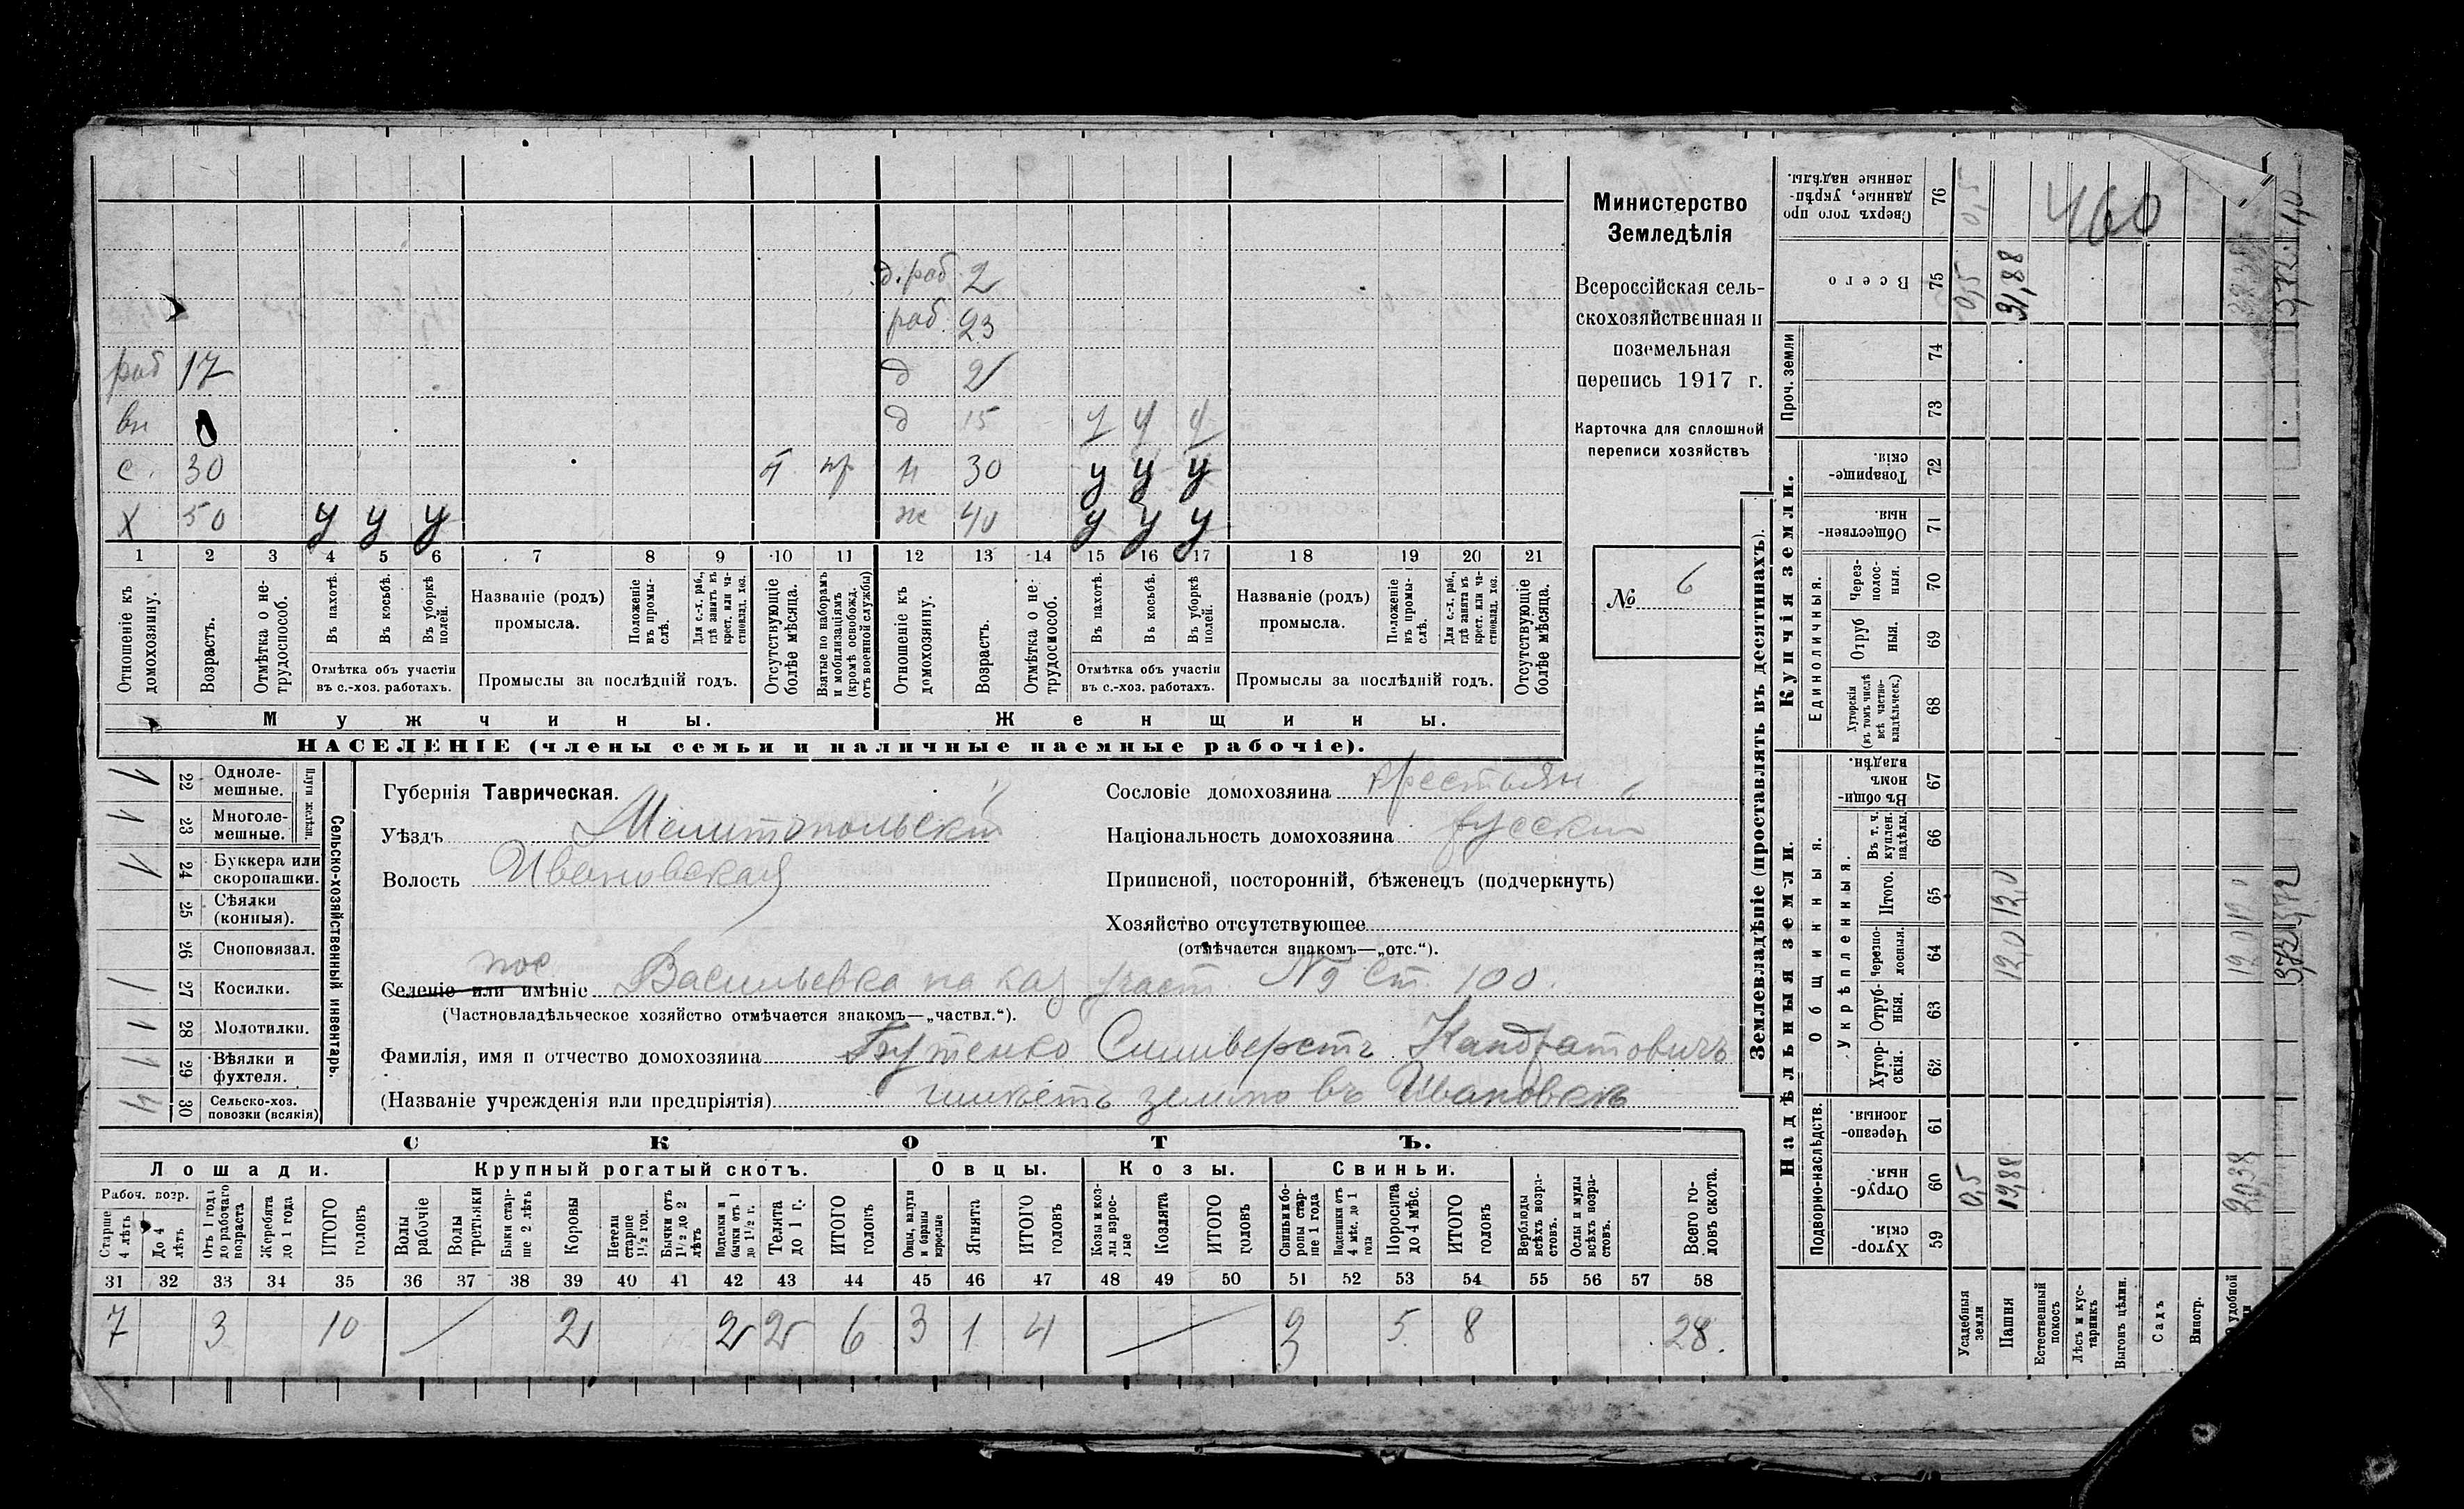 д. раб 2
раб. 23
раб 17 д 2
вн д 15 у у у
с. 30 пр н 30 у у у
х 50 у у у ж 40 у у у
1 2 3 4 5 6 7 8 9 10 11 12 13 14 15 16 17 18 19 20 21
Отношеніе къ домохозяину.
Возрастъ.
Отмѣтка о нетрудоспособ.
Въ пахотѣ.
Въ косьбѣ.
Въ уборкѣ полей.
Отмѣтка объ участіи
въ с.-хоз. работахъ.
Названіе (родъ)
промысла.
Положеніе въ промыслѣ.
Для с.-х. раб., гдѣ занятъ въ крест. или частновлад. хоз.
Промыслы за послѣдній годъ.
Отсутствующіе болѣе мѣсяца.
Взятые по наборамъ и мобилизаціямъ (кромѣ освобожд. отъ военной службы)
Отношеніе къ домохозяину.
Возрастъ.
Отмѣтка о нетрудоспособ.
Въ пахотѣ.
Въ косьбѣ.
Въ уборкѣ полей.
Отмѣтка объ участіи
въ с.-хоз. работахъ.
Названіе (родъ)
промысла.
Положеніе въ промыслѣ.
Для с.-х. раб., гдѣ занята въ крест. или частновлад. хоз.
Промыслы за послѣдній годъ.
Отсутствующіе болѣе мѣсяца.
Мужчины. Женщины.
НАСЕЛЕНІЕ (члены семьи и наличные наемные рабочіе).
Министерство
Земледѣлія
Всероссійская сель-
скохозяйственная и
поземельная
перепись 1917 г.
Карточка для сплошной
переписи хозяйствъ
№ 6
Сельско-хозяйственный инвентарь.
Плуги желѣзн.
1 22 Одноле-
мешные.
1 23 Многоле-
мешные.
1 24 Буккера или
скоропашки.
25 Сѣялки
(конныя).
26 Сноповязал.
1 27 Косилки.
1 28 Молотилки.
1 29 Вѣялки и
фухтеля.
4 30 Сельско-хоз.
повозки (всякія)
Губернія Таврическая.
Уѣздъ Мелитопольскій
Волость Ивановская
Сословіе домохозяина крестьян
Національность домохозяина русскій
Приписной, посторонній, бѣженецъ (подчеркнуть)
Хозяйство отсутствующее
(отмѣчается знакомъ—„отс.“).
пос
Селеніе или имѣніе Васильевка на каз участ. № ст. 100.
(Частновладѣльческое хозяйство отмѣчается знакомъ—„частвл.“).
Фамилія, имя и отчество домохозяина Бутенко Силиверстъ Кандратовичъ
(Названіе учрежденія или предпріятія) имѣетъ землю въ Ивановкѣ
СКОТЪ.
Лошади. Крупный рогатый скотъ. Овцы. Козы. Свиньи.
Рабоч. возр.
Старше 4 лѣтъ
До 4 лѣтъ
Отъ 1 года до рабочаго возраста
Жеребята до 1 года
ИТОГО головъ
Волы рабочіе
Волы третьяки
Быки старше 2 лѣтъ
Коровы
Нетели старше 1½ год.
Бычки отъ 1½ до 2 лѣтъ
Подтелки и бычки отъ 1 до 1½ г.
Телята до 1 г.
ИТОГО головъ
Овцы, валухи и бараны взрослые
Ягнята
ИТОГО головъ
Козы и козлы взрослые
Козлята
ИТОГО головъ
Свиньи и боровы старше 1 года
Подсвинки отъ 4 мѣс. до 1 года
Поросята до 4 мѣс.
ИТОГО головъ
Верблюды всѣхъ возрастовъ.
Ослы и мулы всѣхъ возрастовъ.
Всего головъ скота.
31 32 33 34 35 36 37 38 39 40 41 42 43 44 45 46 47 48 49 50 51 52 53 54 55 56 57 58
7 3 10 2 2 2 6 3 1 4 3 5 8 28.
Землевладѣніе (проставлять въ десятинахъ).
Надѣльныя земли. Купчія земли. Проч. земли
Подворно-наслѣдств.
Общинныя.
Укрѣпленныя.
Единоличныя.
Сверхъ того проданные, укрѣпленные надѣлы. 76 0,5
460
Всего 75 0,5 31,88
74
73
Товарищескія. 72
Общественныя. 71
Черезполосныя. 70
Отрубныя. 69
Хуторскія (въ томъ числѣ всѣ частновладѣльческ.) 68
Въ общинномъ владѣн. 67
Въ т. ч. куплен. надѣлы. 66
Итого. 65 12,0
Черезполосныя. 64 12,0
Отрубныя. 63
Хуторскія. 62
Черезполосныя. 61
Отрубныя. 60 0,5 19,88 20,38
Хуторскія. 59
Усадебныя земли
Пашня
Естественный покосъ
Лѣсъ и кустарникъ
Выгонъ цѣлин.
Садъ
Виногр.
удобной